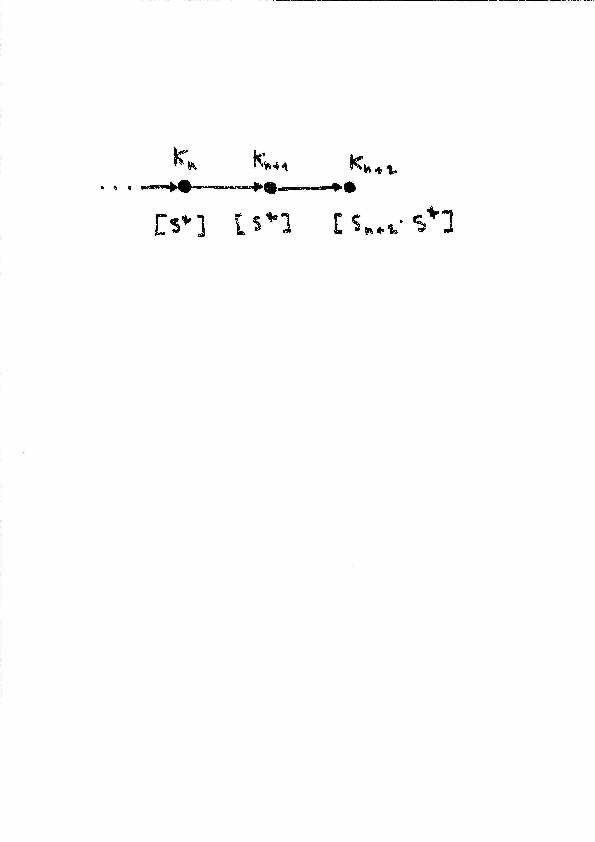 Kn Kn+1 Kn+2
...
[S*] [S*] [Sn+2 · S*]